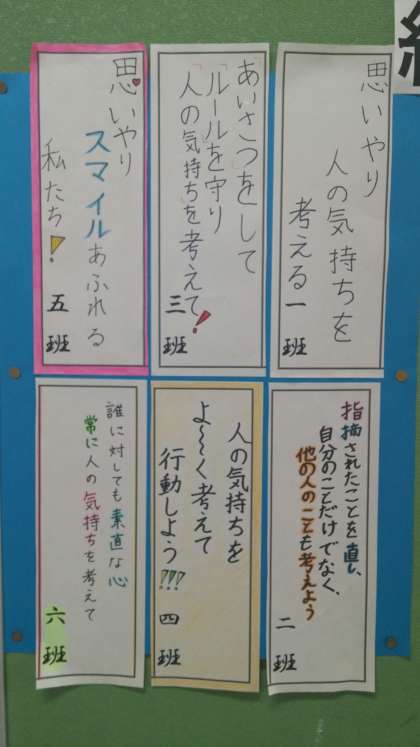 思いやり
人の気持ちを
考える
一班
指摘されたことを直し、
自分のことだけでなく、
他の人のことも考えよう
二班
「あいさつ」をして
「ルール」を守り
人の「気持ち」を考えて!
三班
人の気持ちを
よ〜く考えて
行動しよう!!!
四班
思いやり
スマイルあふれる
私たち!
五班
誰に対しても素直な心
常に人の気持ちを考えて
六班